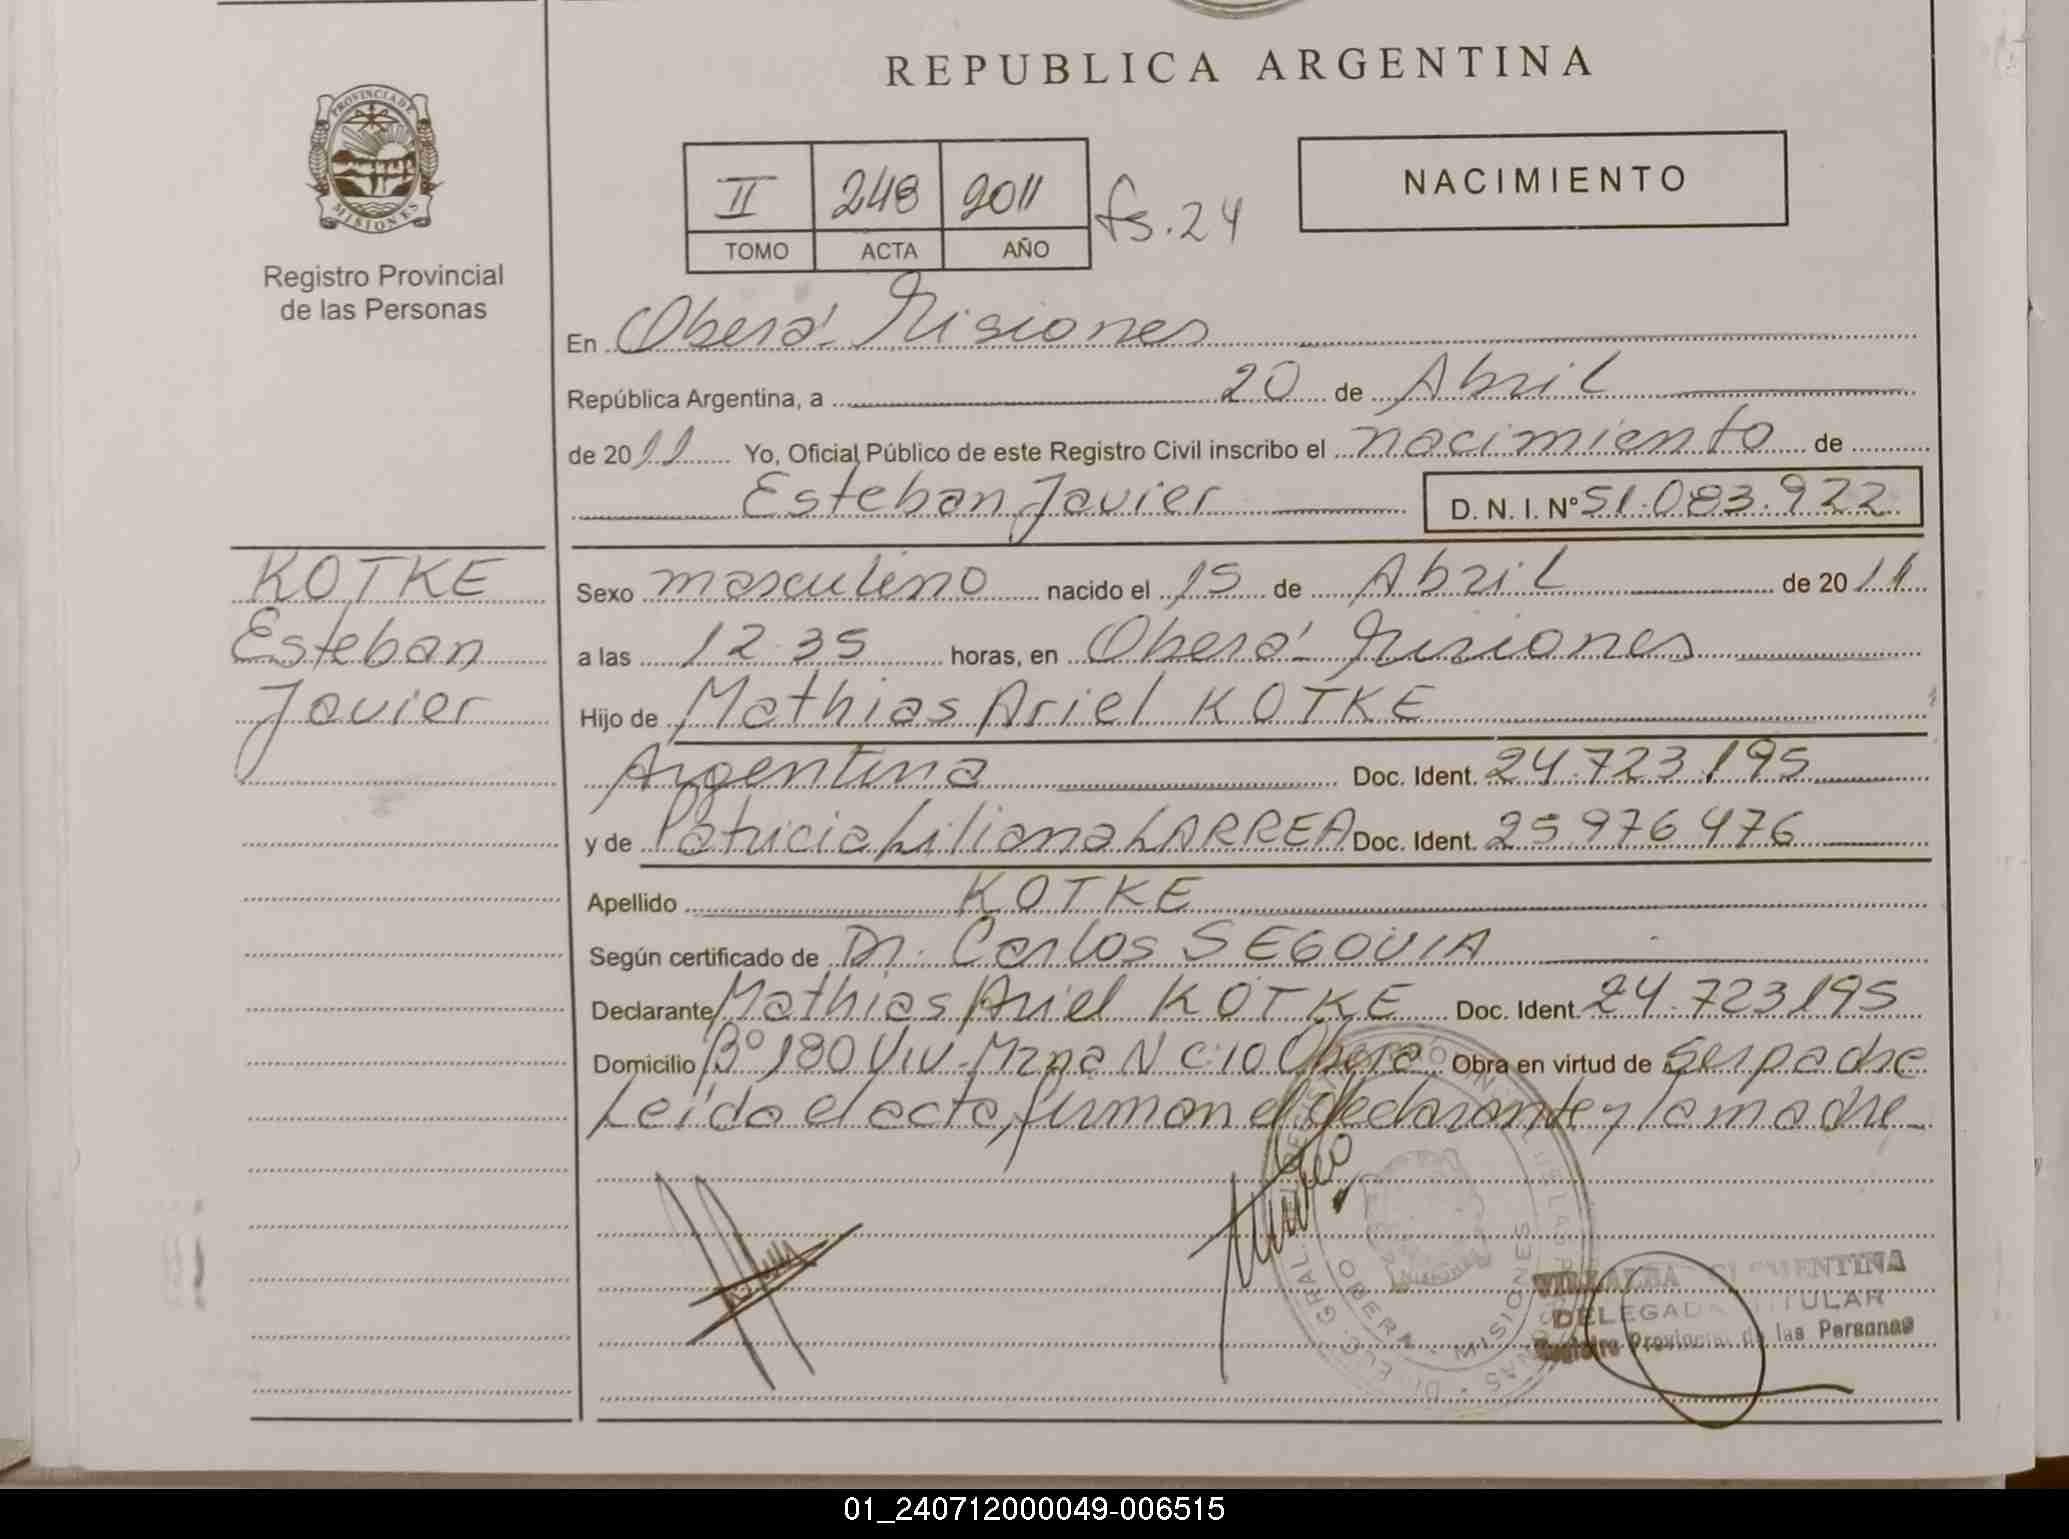 REPUBLICA ARGENTINA
PROVINCIA DE
MISIONES
Registro Provincial
de las Personas
II 248 2011 fs. 24
TOMO ACTA AÑO
NACIMIENTO
En Oberá Misiones
República Argentina, a 20 de Abril
de 2011 Yo, Oficial Público de este Registro Civil inscribo el nacimiento de
Esteban Javier D. N. I. Nº 51.083.922
KOTKE
Esteban
Javier
Sexo masculino nacido el 15 de Abril de 2011
a las 12.35 horas, en Oberá Misiones
Hijo de Mathias Ariel KOTKE
Argentina Doc. Ident. 24.723.195
y de Patricia Liliana LARREA Doc. Ident. 25.976.476
Apellido KOTKE
Según certificado de Dr. Carlos SEGOVIA
Declarante Mathias Ariel KOTKE Doc. Ident. 24.723.195
Domicilio Bº 180 Viv - Mzna N C:10 Oberá Obra en virtud de ser padre
Leída el acta, firman el declarante y la madre
OBERA - MISIONES
VILLALBA CLEMENTINA
DELEGADA TITULAR
Registro Provincial de las Personas
01_240712000049-006515